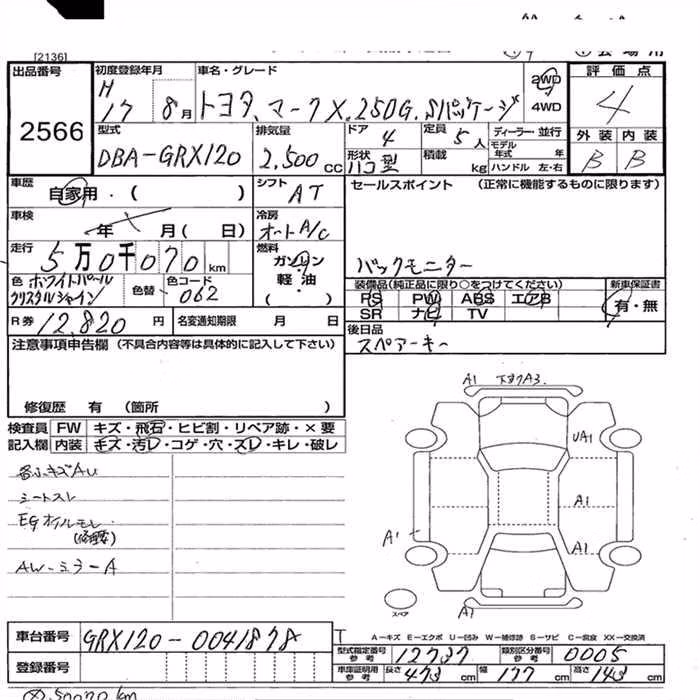 [2136]
出品番号 初度登録年月 車名・グレード 2WD 評価点
2566 H 17 8月 トヨタ、マークX.250G.Sパッケージ 4WD 4
型式 排気量 ドア 定員 ディーラー・並行 外装 内装
DBA-GRX120 2,500cc 4 5人 モデル年式 年 B B
形状 ハコ型 積載 kg ハンドル 左・右
車歴 シフト セールスポイント (正常に機能するものに限ります)
自家用・( ) AT
車検 年 月( 日) 冷房 オートA/C
走行 5万0千070km 燃料 ガソリン 軽油・( ) バックモニター
色 ホワイトパールクリスタルシャイン 色替 色コード 062 装備品(純正品に限り○をつけてください) 新車保証書
PS PW ABS エアB 有・無
SR ナビ TV
R券 12,820円 名変通知期限 月 日 後日品
注意事項申告欄(不具合内容等は具体的に記入して下さい) スペアーキー
修復歴 有 (箇所 )
A1 下キズA3.
検査員 FW キズ・飛石・ヒビ割・リペア跡・×要
記入欄 内装 キズ・汚レ・コゲ・穴・スレ・キレ・破レ
UA1
各ふキズAU
シートスレ A1
EGオイルモレ
(修理要) A1 A1
AW-ミラーA
スペア A1
車台番号 GRX120-0041878
A-キズ E-エクボ U-凹み W-補修跡 S-サビ C-腐食 XX-交換済
型式指定番号 参考 12737 類別区分番号 参考 0005
登録番号 車庫証明用 参考 長さ 473cm 幅 177cm 高さ 143cm
50070km